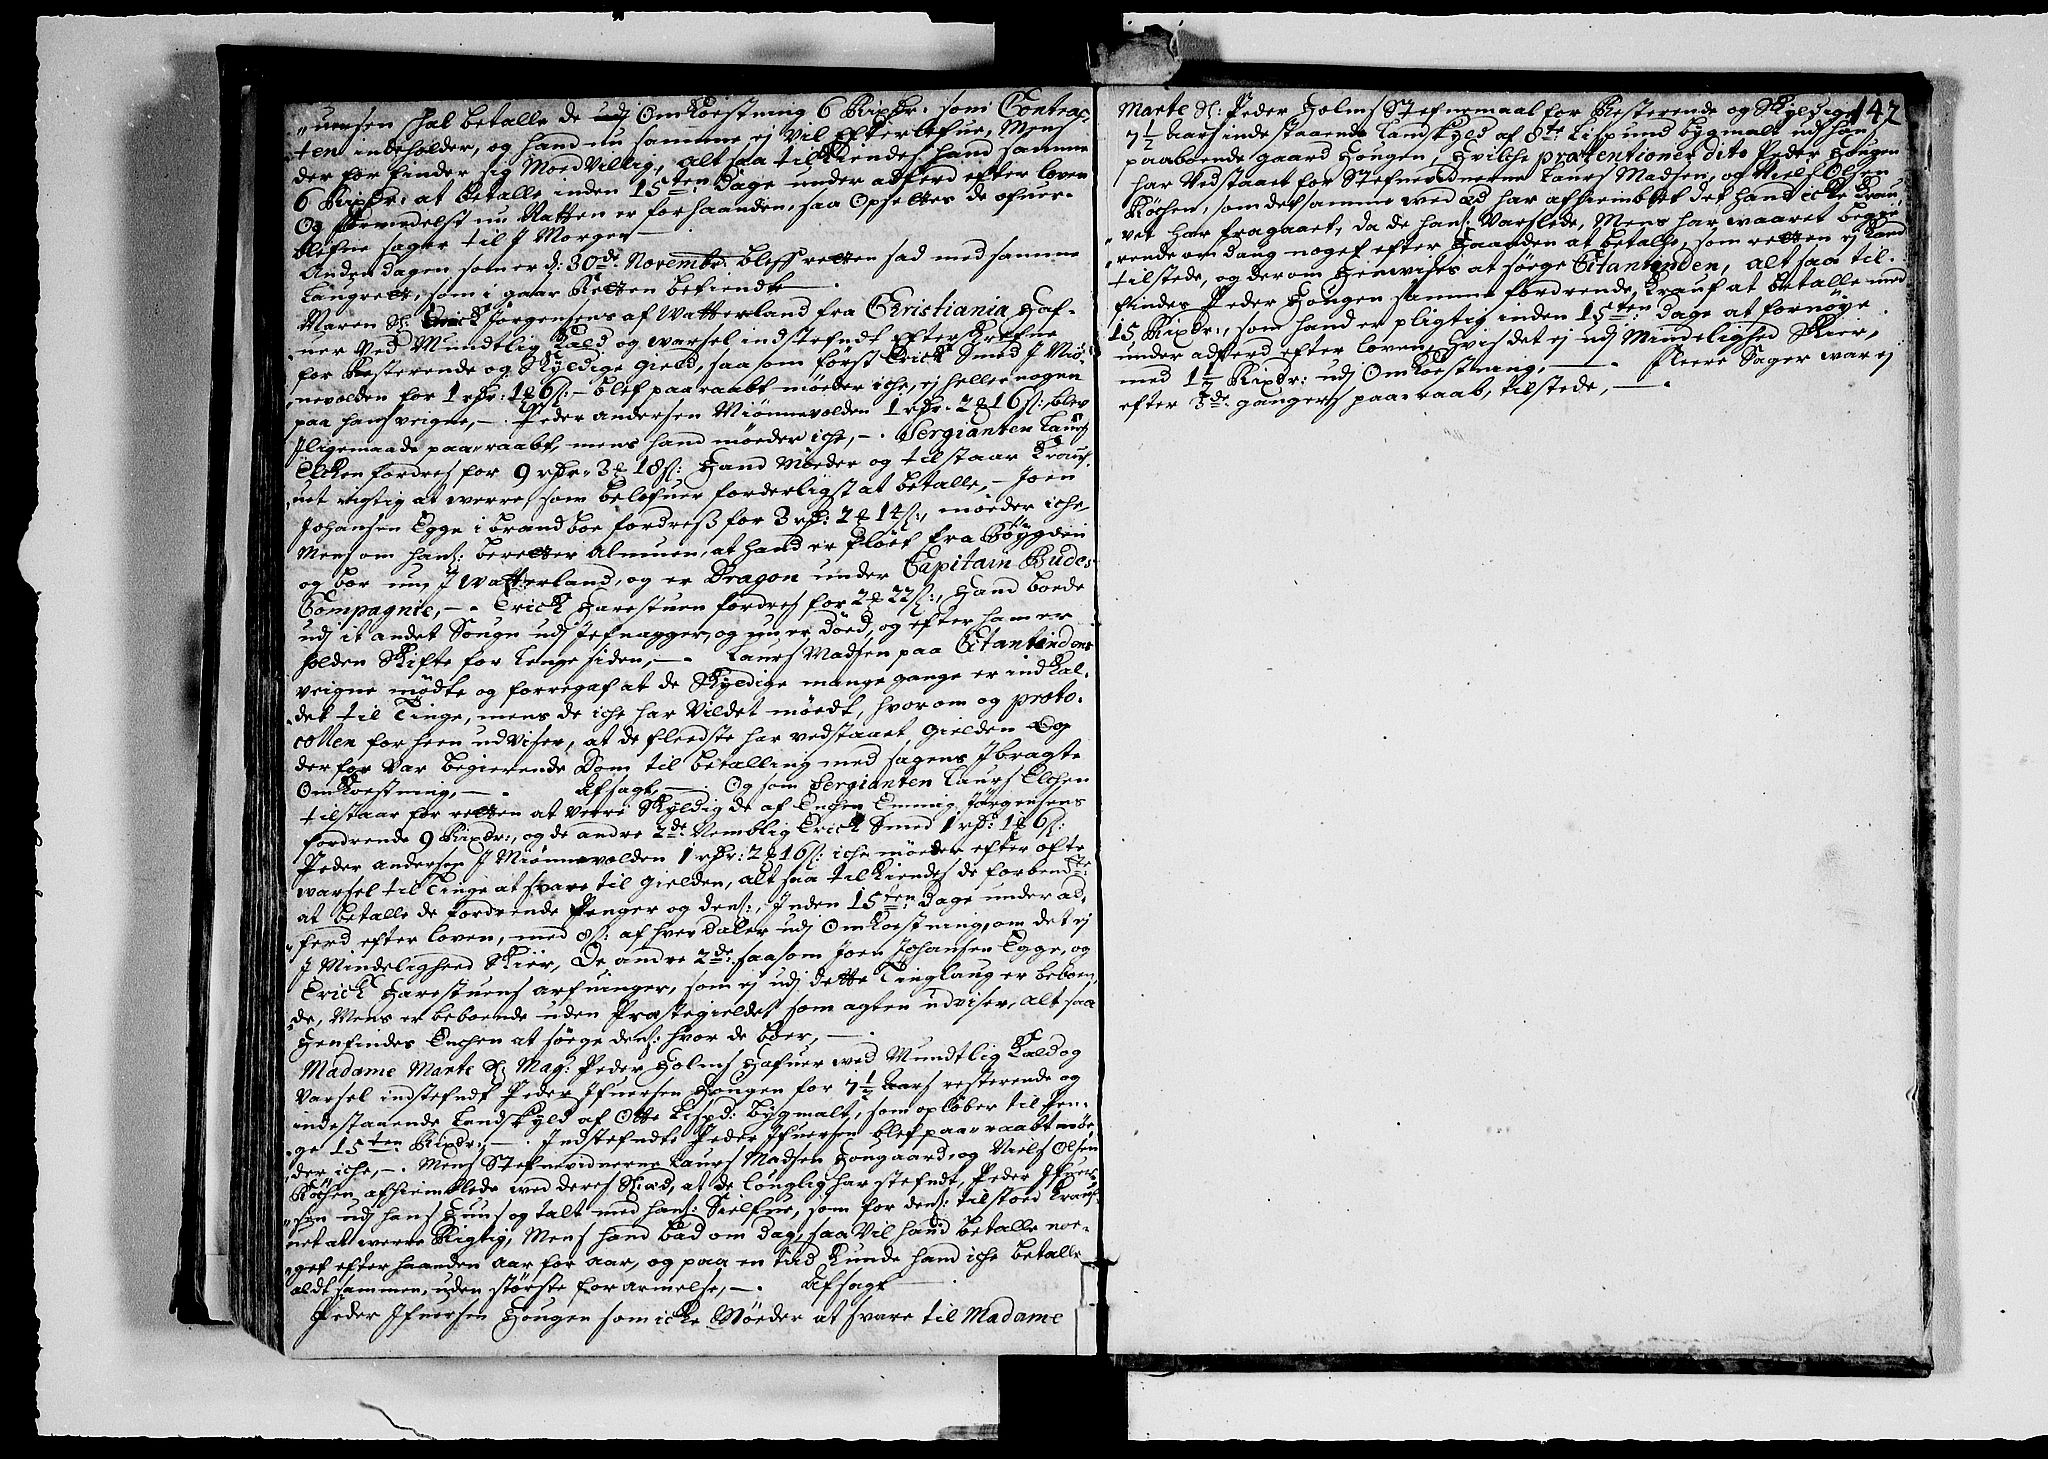 "uersen skal betalle de udj Omkoestning 6 Rixdr: som Contrac-
"ten indeholder, og hand nu samme ej vil Efterlefue, Mens
der for finder sig Moedvillig, alt saa tilkiendes hand samme
6 Rixdr: at betalle inden 15ten Dage under adferd efter loven
Og formedelst nu Natten er forhaanden, saa Opsettes de ofuer-
blefne sager til J Morgen —
Anden dagen som er d: 30de Novembr: bleff retten sad med samme
Laugrett, som i gaar Retten befiendt —
Maren Sl: Erick Jørgensens af Watterland fra Christiania Haf-
"uer ved Mundtlig Kald og warsel indstefndt Efterskrefne
for Resterende og Skyldige gield, saa som først Erick Smed J Miø-
"nevolden for 1 rdr: 1 ort 6 s: — blef paaraabt møeder iche, ej heller nogen
paa hans veigne, — . Peder andersen Miønnevolden 1 rdr: 2 ort 16 s: blev
J ligemaade paaraabt, mens hand møeder iche, — . Sergianten Laurs
Elchen fordres for 9 rdr: 3 ort 18 s: Hand Møeder og tilstaar Krauf-
"uet rigtig at werre, som belofuer forderligst at betalle, — Joen
Johansen Egge i brandboe fordres for 3 rdr: 2 ort 14 s:, møeder iche
Mens om hans: beretter Almuen, at hand er fløet fra Bøygden
og boer nu J Watterland, og er Dragon under Capitain Budes
Compagnie, — . Erick Harestuen fordres for 2 ort 22 s:, Hand boede
udj it andet Sougn udj Jefnagger, og nu er død, og efter ham er
holden Skifte for lenge siden, — . Laurs Madsen paa Citantindens
veigne mødte og forregaf at de Skyldige mange gange er indkal-
"det til Tinge, mens de iche har vildet møedt, hvorom og proto-
collen forheen udviser, at de fleedste har vedstaaet gielden Og
derfor var begierende Dom til betalling med sagens Jbragte
Omkoestning, — . Afsagt, — . Og som Sergianten Laurs Elchen
tilstaar for retten at verre Skyldig de af Enchen Emmig Jørgensens
fordrende 9 Rixdr:, og de andre 2de Nemblig Erick Smed 1 rdr: 1 ort 6 s:
Peder andersen J Miønnevolden 1 rdr: 2 ort 16 s: iche møeder efter ofte
warsel til Tinge at svare til gielden, alt saa tilkiendes de forbendte
at betalle de fordrende Penger og dens:, Jnden 15ten Dage under ad-
"ferd efter loven, med 8 s: af hver daler udj Omkoestning, om det ej
J Mindelighed Skier, De andre 2de saa som Joen Johansen Egge, og
Erick Harestuens arfuinger, som ej udj dette Tinglaug er beboen-
"de, Mens er beboende uden Præstegieldet som agten udviser, alt saa
Henfindes Enchen at søege dens: hvor de boer, — .
Madame Marte Sl: Mag: Peder Holms Hafuer wed Mundtlig Kald og
Varsel indstefndt Peder Jfuersen Hougen for 7½ Aars resterende og
indestaaende Landskyld af Otte Lispd: bygmalt, som opløber til Pen-
"ge 15ten Rixdr:, — . Jndstefndte Peder Jfuersen blef paaraabt møe-
der iche, — . Mens Stefnevidnerne Laurs Madsen Hougaard, og Niels Olsen
Køchen afhiemblede wed deres Sl: æd, at de louglig har stefndt, Peder Jfuer-
"sen udj hans Huus og talt med hans: Sielfue, som for dens: tilstoed Krauf-
uet at werre Rigtig, Mens hand bad om dag, saa vil hand betalle noe-
"get efter haanden aar for aar, og paa en tid Kunde hand iche betalle
aldt sammen, uden største forarmelse, — . Afsagt
Peder Jfuersen Hougen som icke Møeder at svare til Madame
142
Marte Sl: Peder Holms Stefnemaal for Resterende og Skyldige
7½ Aars inde staaende Landskyld af 8te Lispund bygmalt udj hans
paaboende gaard Hougen, Hvilche prætentioner dito Peder Hougen
har vedstaaet for Stefnevidnerne Laurs Madsen, og Niels Olsen
Køchen, som det samme wed æd har afhiemblet det hand icke Krau-
"vet har fragaaet, da de hans: Varslede, Mens har waaret begie-
"rende om dang noget efter Haanden at betalle, som retten ej Kand
tilstede, og derom Henwises at søege Citantinden, alt saa til-
findes Peder Hougen samme fordrende Krauf at betalle med
15 Rixdr:, som hand er pligtig inden 15ten Dage at fornøye
under adferd efter loven, Hvis det ej udj Mindelighed Skier,
med 1½ Rixdr: udj Omkoestning, — . Fleere Sager war ej
efter 3de gangers paaraab, tilstede, — .